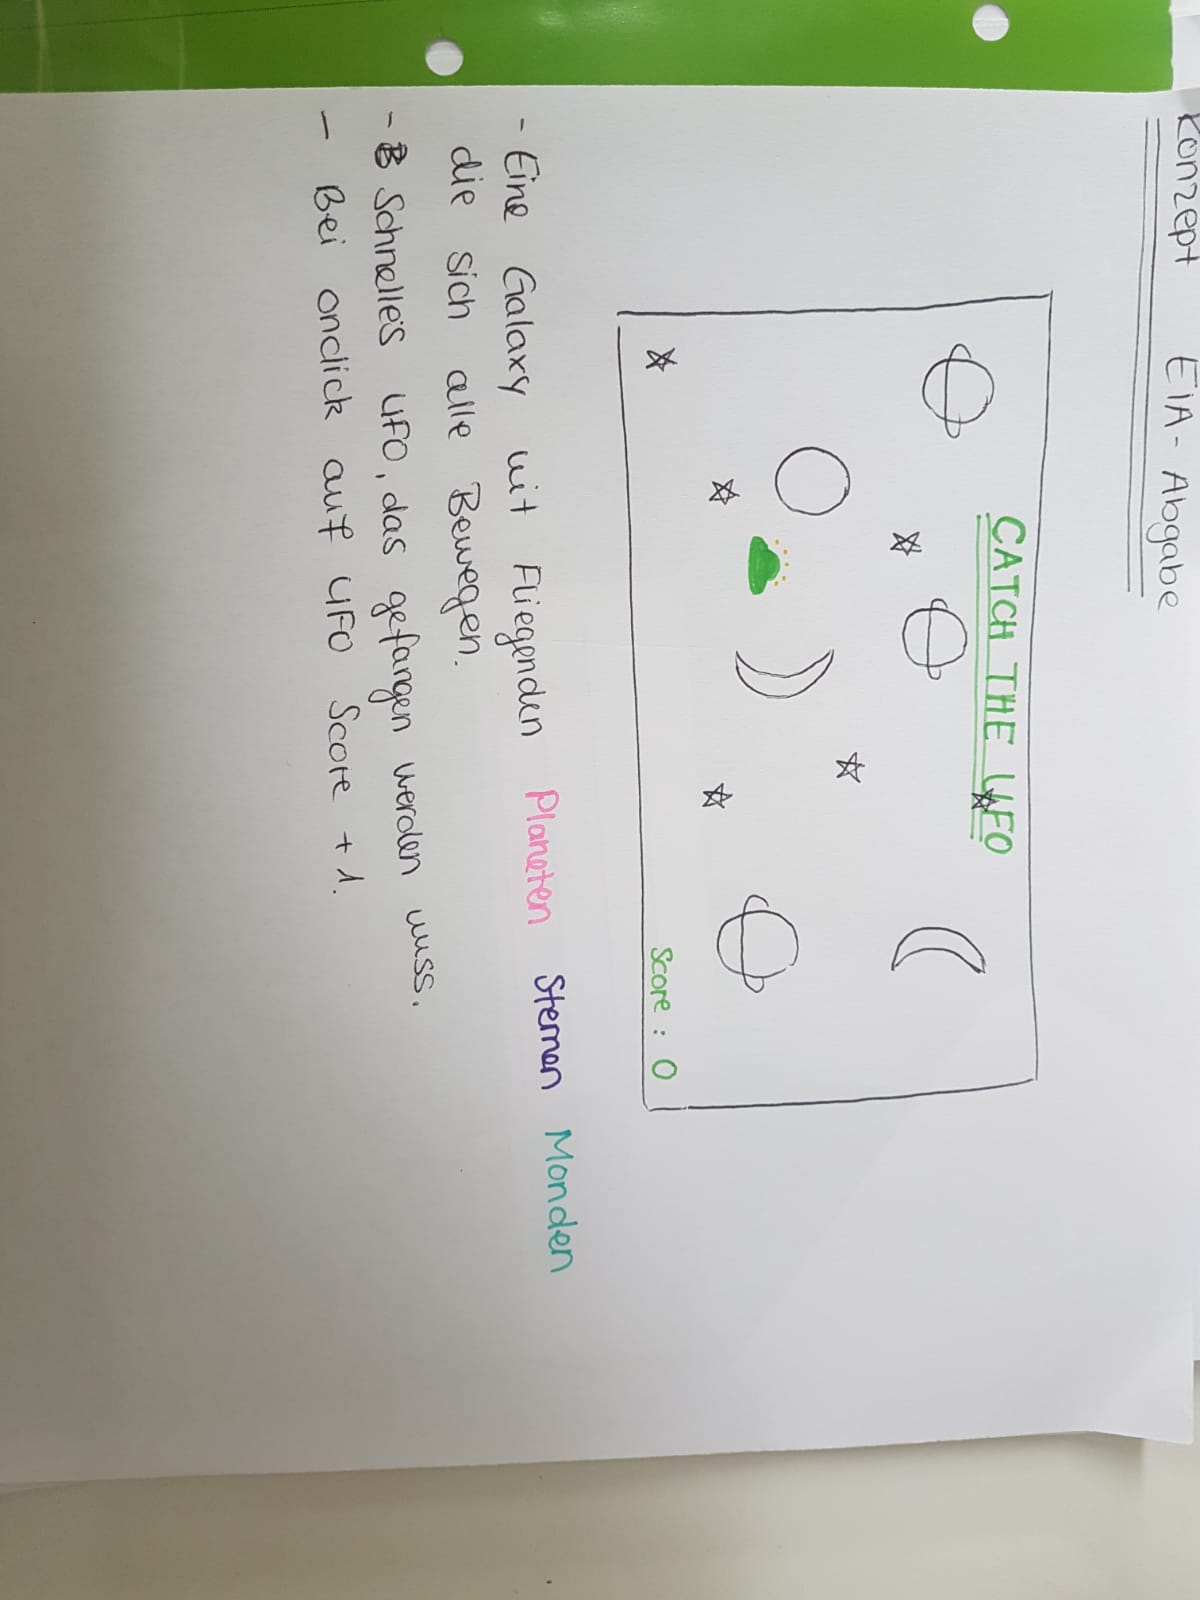 Konzept EIA-Abgabe
CATCH THE UFO
Score: 0
- Eine Galaxy mit Fliegenden Planeten Sternen Monden
die sich alle Bewegen.
- Schnelles UFO, das gefangen werden muss.
- Bei onclick auf UFO Score +1.